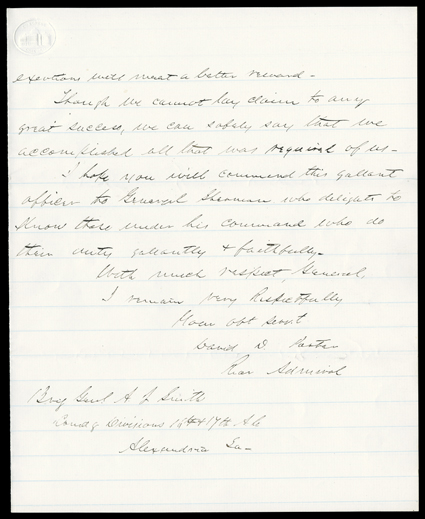 exertions will meet a better reward -
Though we cannot lay claim to any
great success, we can safely say that we
accomplished all that was required of us -
I hope you will commend this gallant
officer to General Sherman who delights to
know those under his command who do
their duty gallantly & faithfully -
With much respect, General,
I remain very Respectfully
Your obt servt
David D Porter
Rear Admiral
Brig Genl A J Smith
Comdg Divisions 16th & 17th A C
Alexandria La -